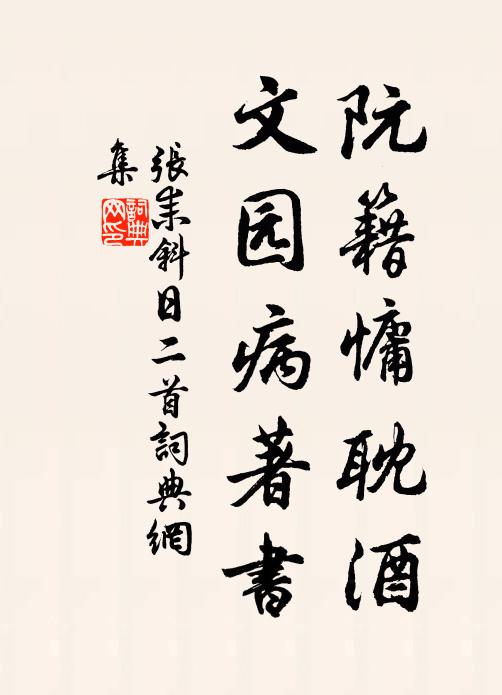 阮籍慵耽酒
文园病著書
張耒斜日二首詞典網
集
詞典
网印